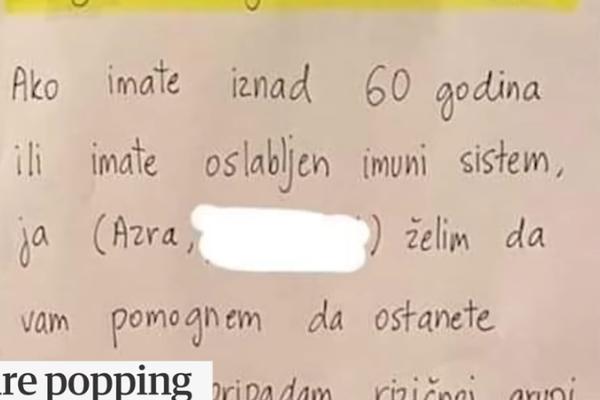 Ako imate iznad 60 godina
ili imate oslabljen imuni sistem,
ja (Azra, ) želim da
vam pomognem da ostanete
re popping
pripadam rizičnoj grupi